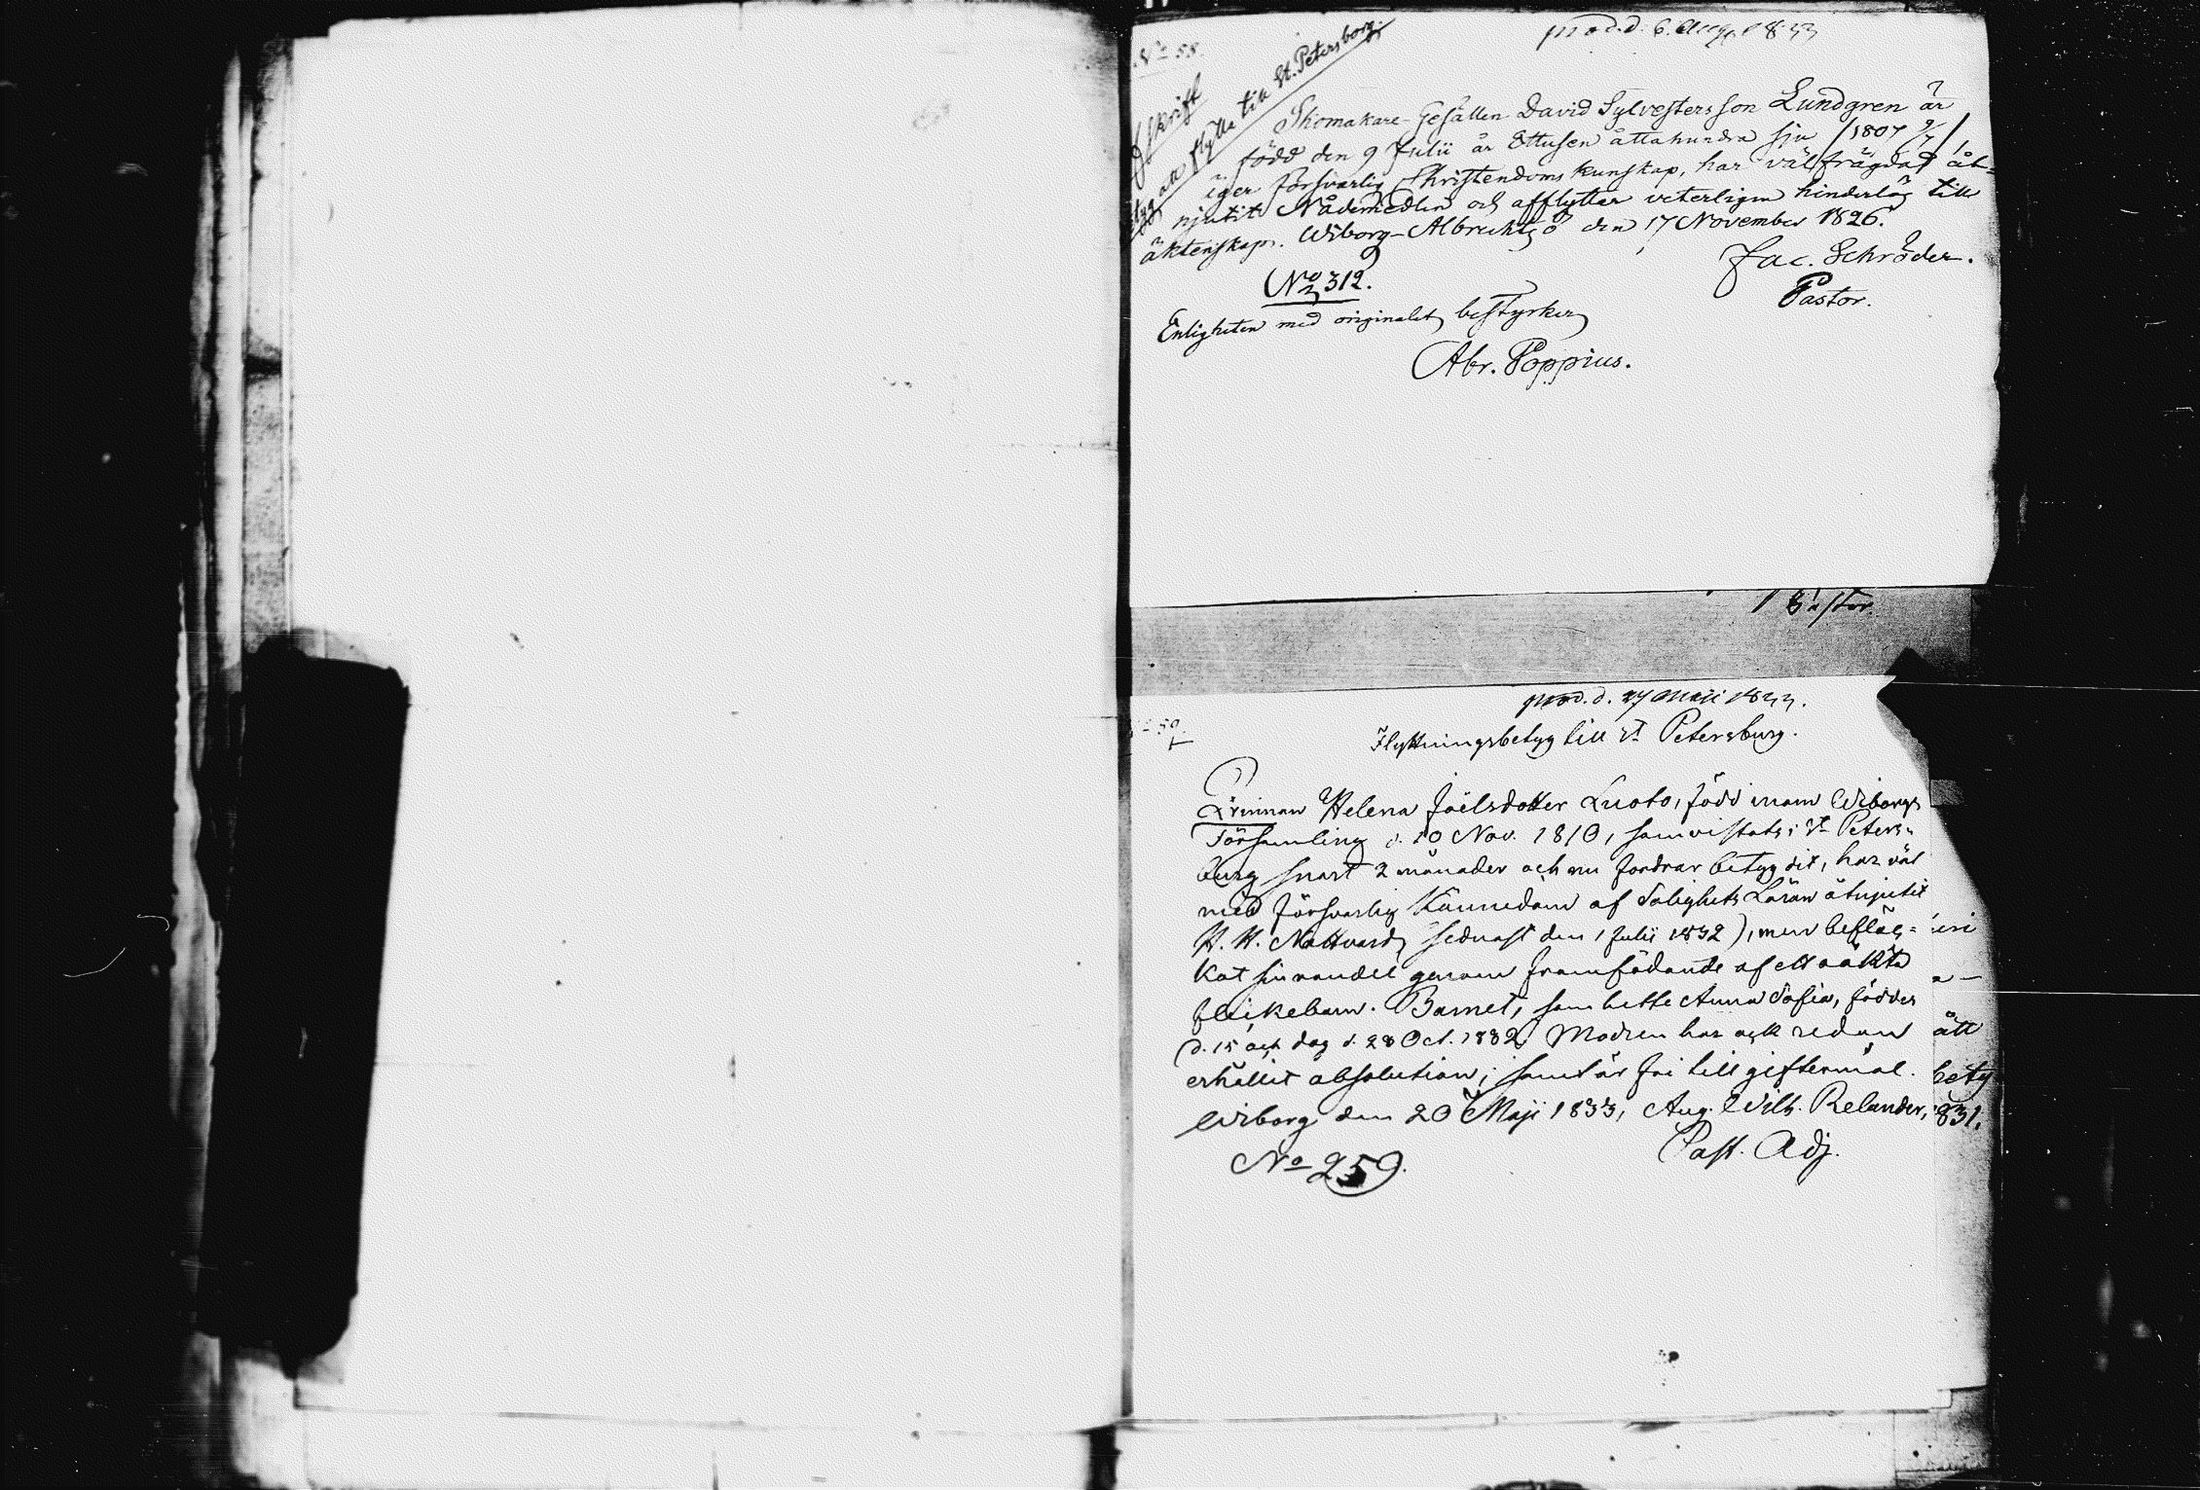 No 58.
prod. d. 6. Aug. 1833
Afskrift
att flytta till St. Petersborg
Skomakare-Gesällen David Sylvestersson Lundgren är
född den 9 Julii år Ettusen åttahundra sju /1807 9/7/,
äger försvarlig Christendoms kunskap, har välfrägdad åt-
njutit Nådemedlen och afflyttar veterligen hinderlös till
äktenskap. Wiborg-Albrechtsö den 17 November 1826.
Jac. Schröder.
Pastor.
No 312.
Enligheten med originalet, bestyrker
Abr. Poppius.
Pastor.
prod. d. 27 Maji 1833.
No 59.
Flyttningsbetyg till St Petersburg.
Qvinnan Helena Joëlsdotter Luoto, född inom Wiborgs
Församling d. 10 Nov. 1810, som vistats i St Peters-
burg snart 2 månader och nu fordrar betyg dit, har väl
med försvarlig Kännedom af Salighets Läran åtnjutit
H. H. Nattvard, sednast den 1 Julii 1832), men befläc-
kat sin vandel genom framfödande af ett oäkta
flickebarn. Barnet, som hette Anna Sofia, föddes
d. 15 och dog d. 28 Oct. 1832. Modren har ock redan
erhållit absolution; samt är fri till giftermål.
Wiborg den 20 Maji 1833, Aug. Wilh. Relander,
Past. Adj.
No 259.
ått
bety
831.